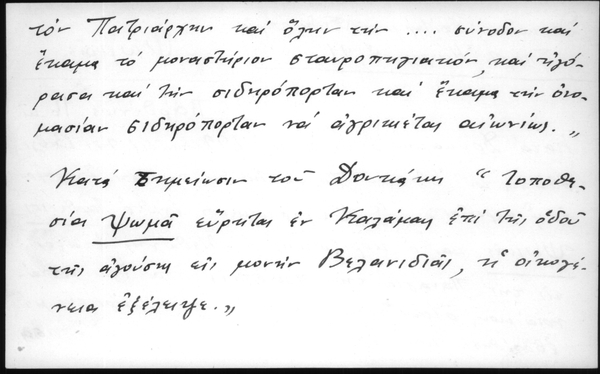 τόν Πατριάρχην καί ὅλην τήν .... σύνοδον καί
ἔκαμα τό μοναστήριον σταυροπηγιακόν, καί ἠγό-
ρασα καί τήν σιδηρόπορταν καί ἔκαμα τήν ὀνο-
μασίαν σιδηρόπορταν νά ἀγρικιέται αἰωνίως.„
Κατά Σημείωσιν τοῦ Δουκάκη “Τοποθε-
σία Ψωμᾶ εὕρηται ἐν Καλάμαις ἐπί τῆς ὁδοῦ
τῆς ἀγούσης εἰς μονήν Βελανιδιᾶς, ἡ οἰκογέ-
νεια ἐξέλειψε.„